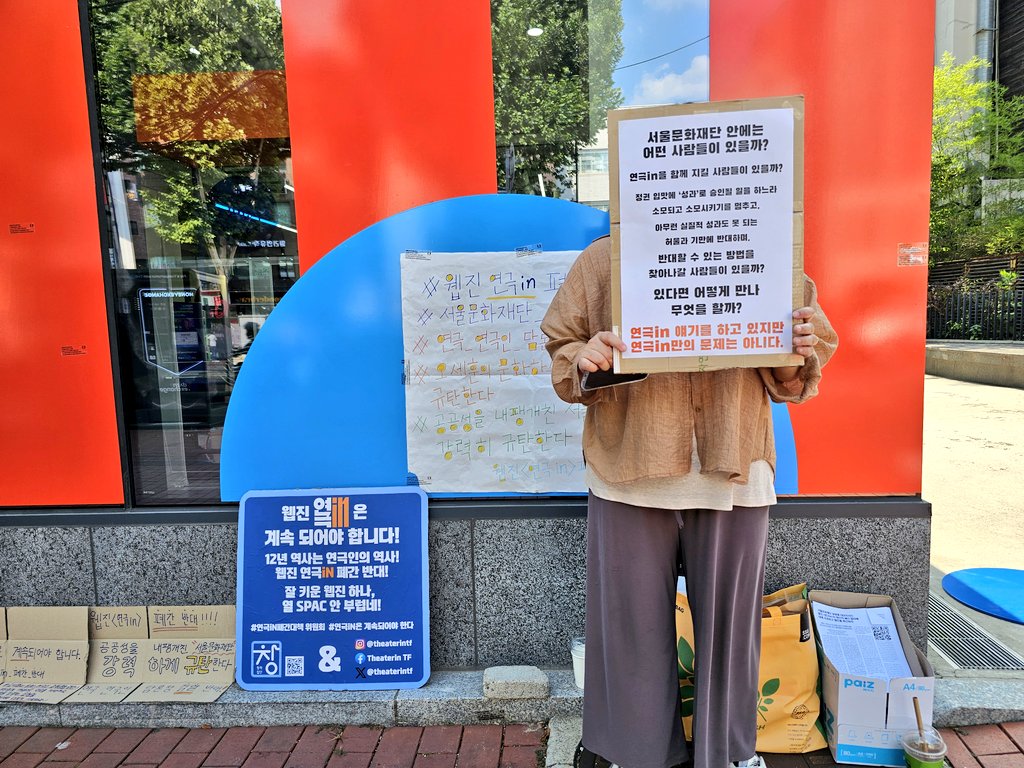 서울문화재단 안에는
어떤 사람들이 있을까?
연극in을 함께 지킬 사람들이 있을까?
정권 입맛에 '성과'로 승인될 일을 하느라
소모되고 소모시키기를 멈추고,
아무런 실질적 성과도 못 되는
허울과 기만에 반대하며,
반대할 수 있는 방법을
찾아나갈 사람들이 있을까?
있다면 어떻게 만나
무엇을 할까?
연극in 얘기를 하고 있지만
연극in만의 문제는 아니다.
※ 웹진 연극in 폐
※ 서울문화재단
※ 연극 연극인
※ 오세훈의 문화
규탄한다
※ 공공성을 내팽개친 서
강력히 규탄한다
웹진<연극in>
웹진 연극iN은
계속 되어야 합니다!
12년 역사는 연극인의 역사!
웹진 연극iN 폐간 반대!
잘 키운 웹진 하나,
열 SPAC 안 부럽네!
#연극iN폐간대책 위원회 #연극iN은 계속되어야 한다
창
&
@theaterintf
Theaterin TF
@theaterintf
계속되어야 합니다.
폐간 반대
웹진<연극in> 폐간 반대!!!
공공성을 내팽개친 서울문화재단
강력하게 규탄한다
MONEYEXCHANGE
paiz
A4